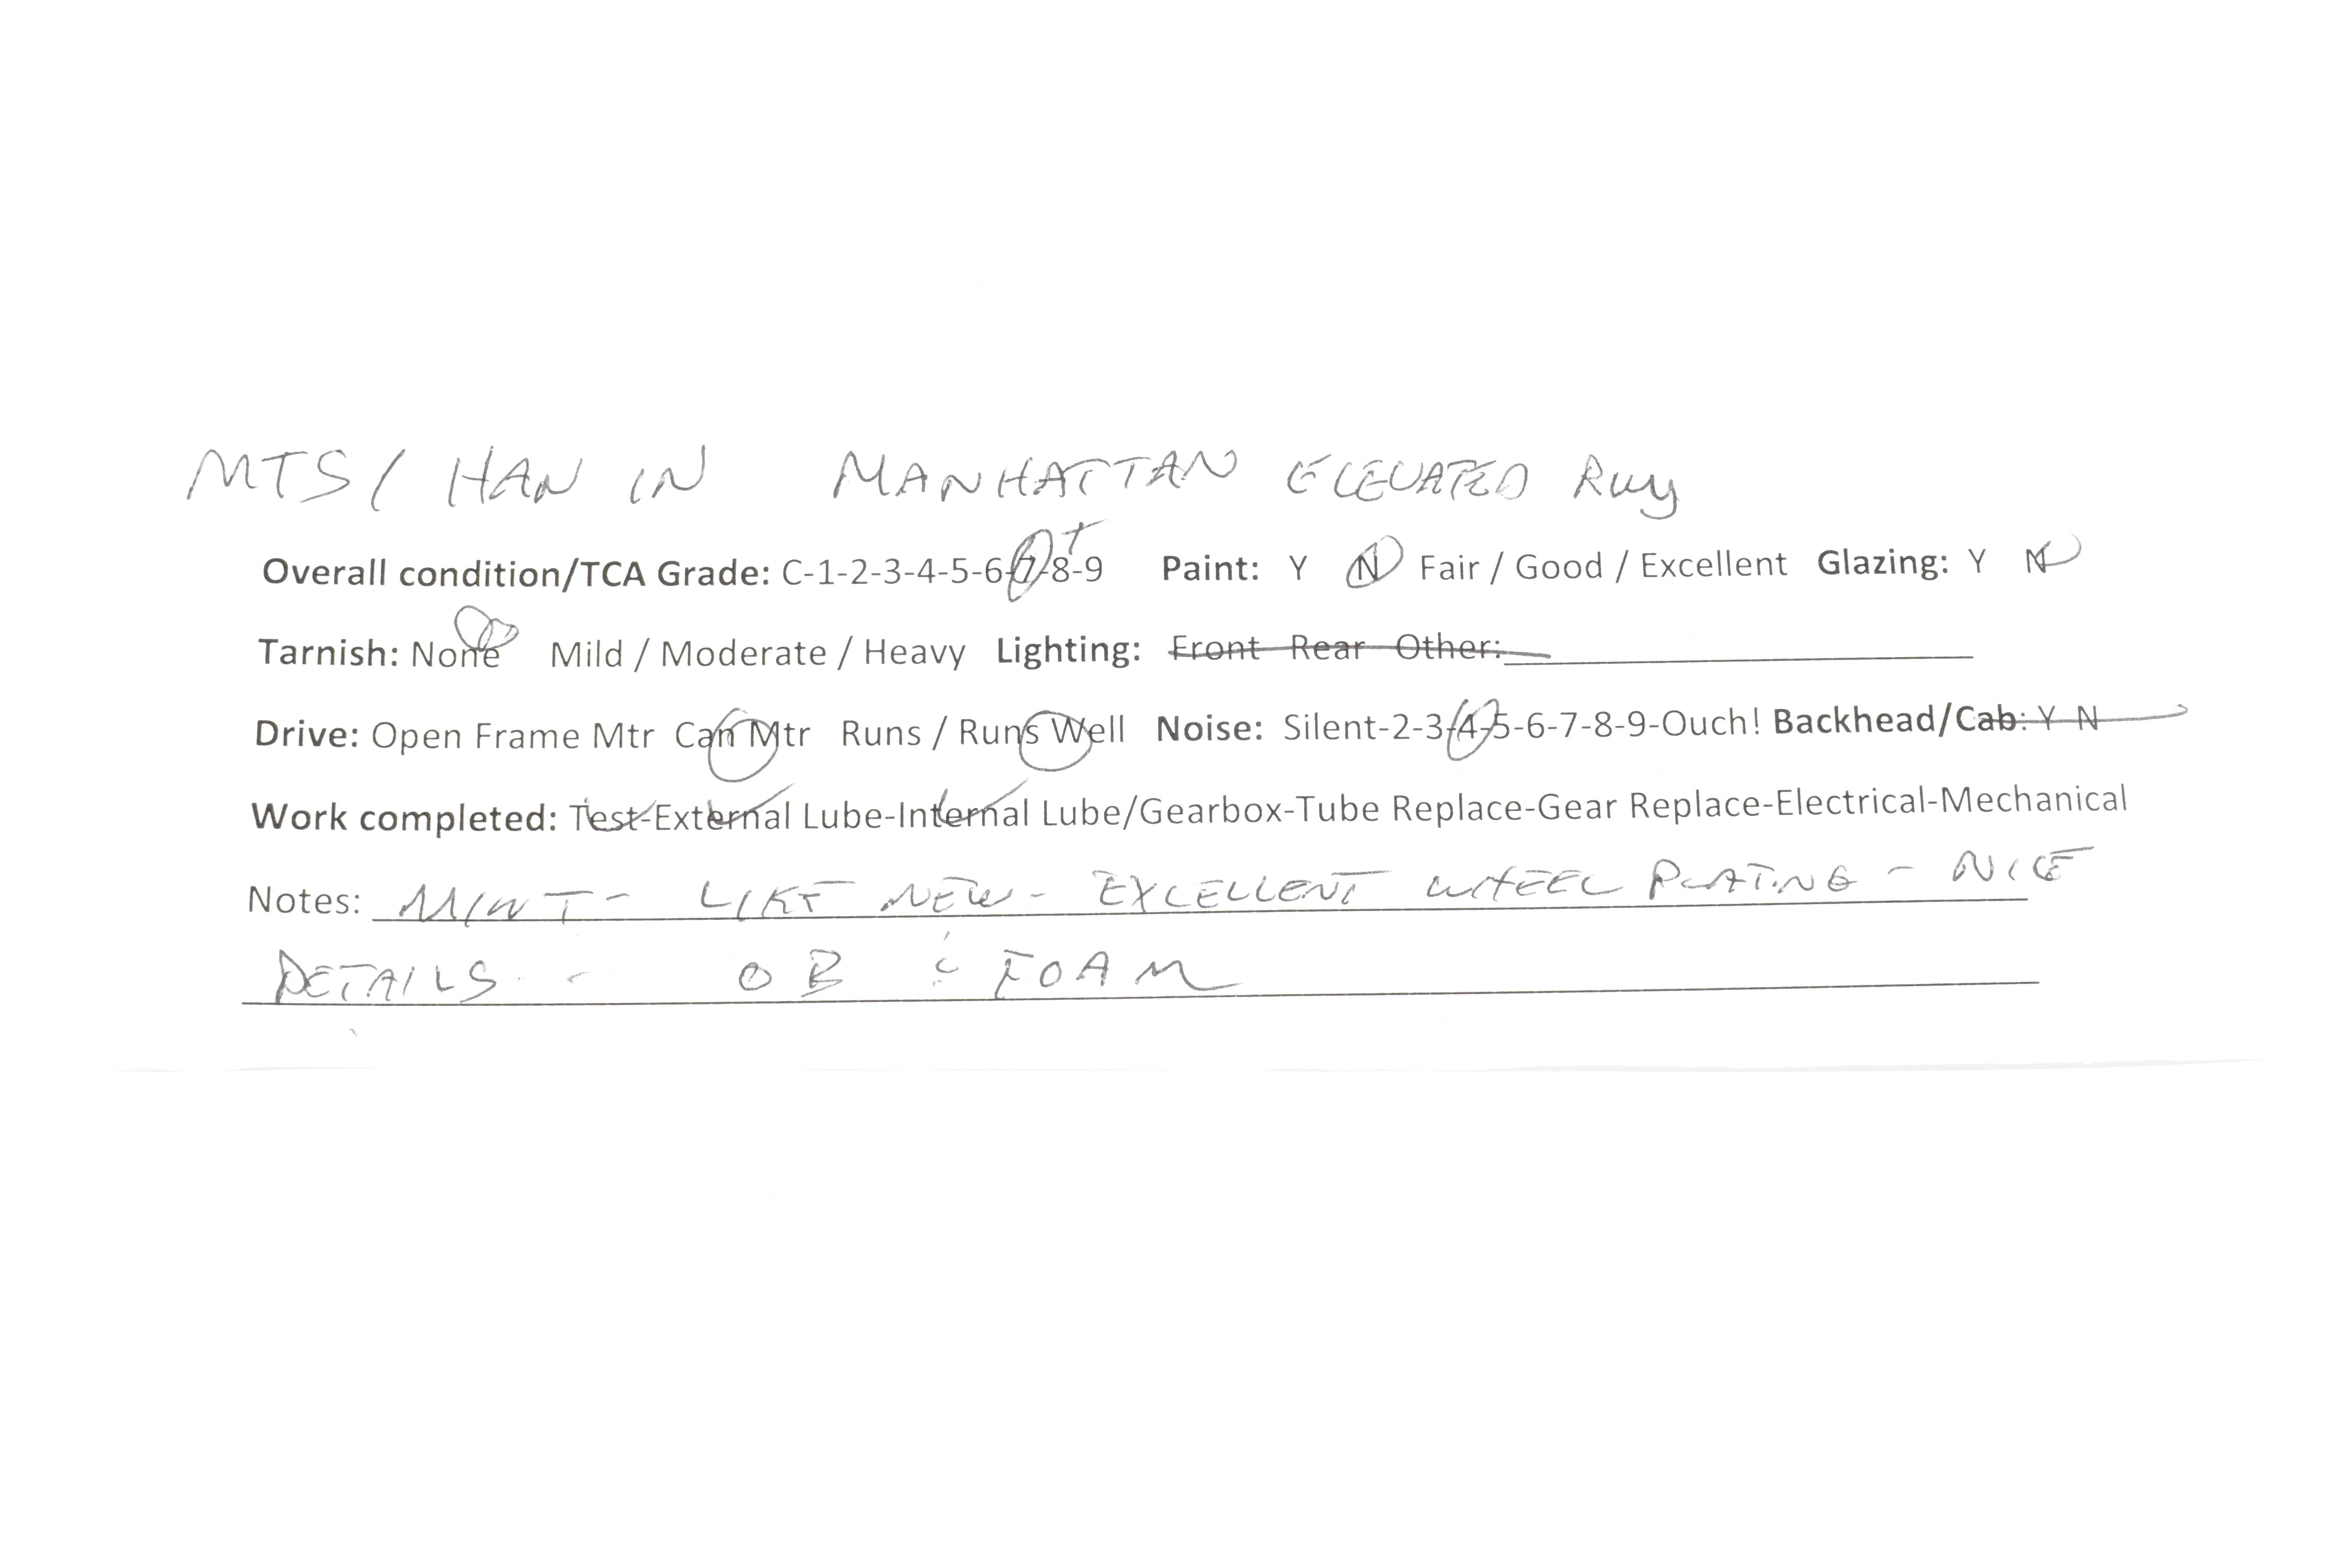 MTS/ HAN IN MANHATTAN ELEVATED Rwy
Overall condition/TCA Grade: C-1-2-3-4-5-6-7-8-9 + Paint: Y N Fair / Good / Excellent Glazing: Y N
Tarnish: None Mild / Moderate / Heavy Lighting: Front Rear Other:
Drive: Open Frame Mtr Can Mtr Runs / Runs Well Noise: Silent-2-3-4-5-6-7-8-9-Ouch! Backhead/Cab: Y N
Work completed: Test-External Lube-Internal Lube/Gearbox-Tube Replace-Gear Replace-Electrical-Mechanical
Notes: MINT - LIKE NEW - EXCELLENT WHEEL PLATING - NICE
DETAILS - OB & FOAM